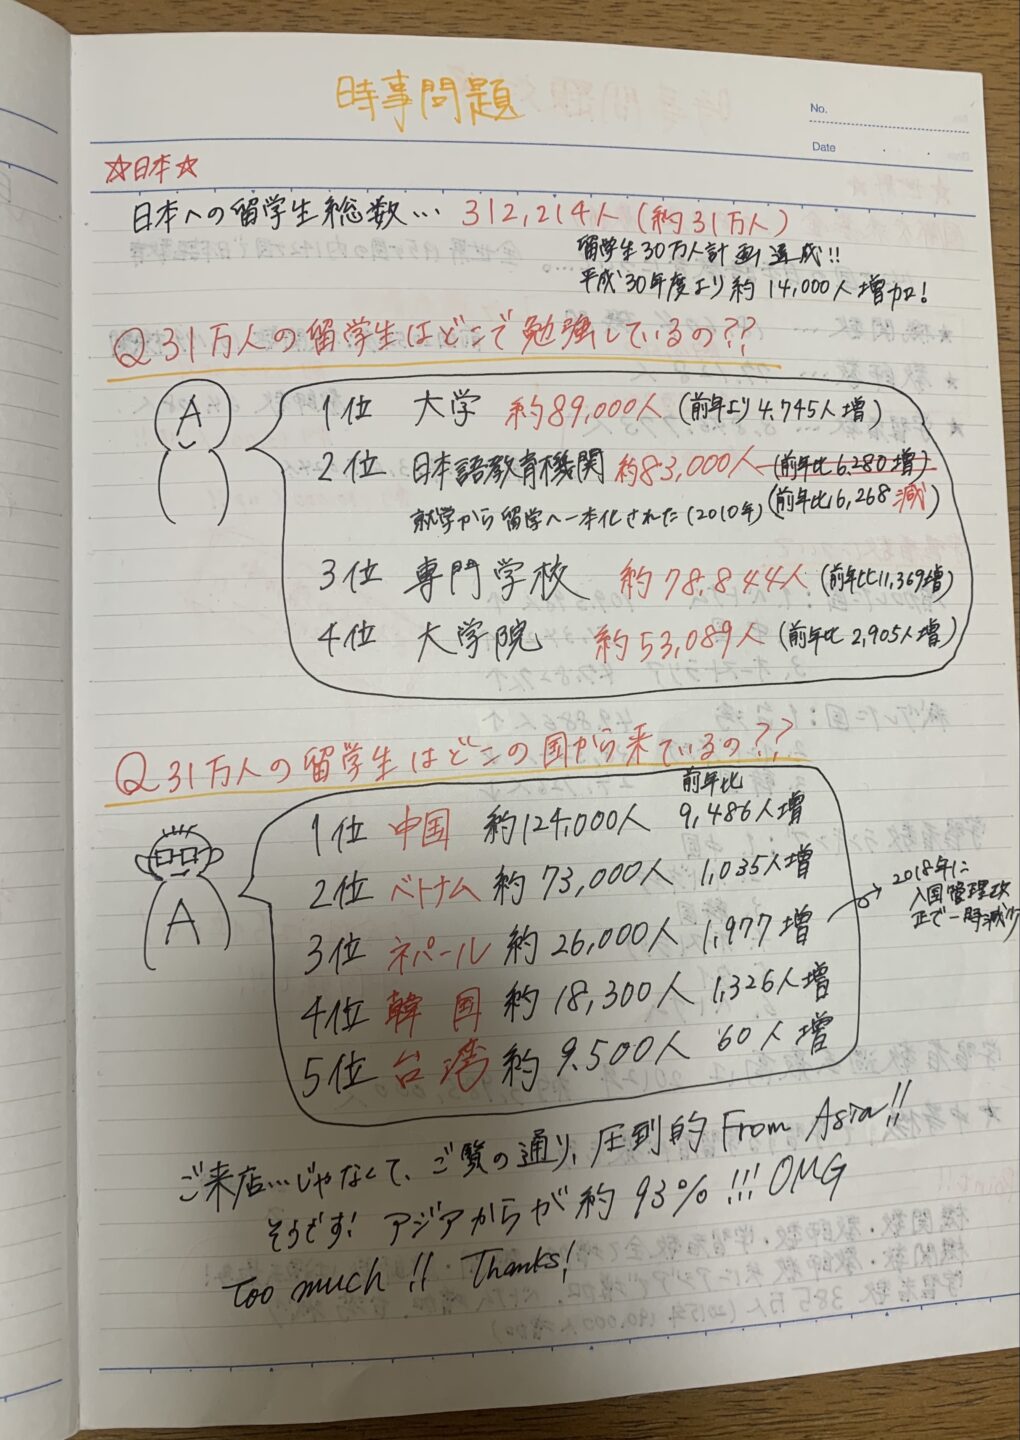 時事問題
No.
Date
☆日本☆
日本への留学生総数… 312,214人（約31万人）
留学生30万人計画達成!!
平成30年度より約14,000人増加!
Q31万人の留学生はどこで勉強しているの??
A
1位 大学 約89,000人（前年より4,745人増）
2位 日本語教育機関 約83,000人（前年比6,280増）
就学から留学へ一本化された（2010年）（前年比6,268減）
3位 専門学校 約78,844人（前年比11,369増）
4位 大学院 約53,089人（前年比2,905人増）
Q31万人の留学生はどこの国から来ているの??
前年比
A
1位 中国 約124,000人 9,486人増
2位 ベトナム 約73,000人 1,035人増
3位 ネパール 約26,000人 1,977増
→2018年に
入国管理改
正で一時減少
4位 韓国 約18,300人 1,326人増
5位 台湾 約9,500人 60人増
ご来店…じゃなくて、ご覧の通り、圧到的From Asia!!
そうです! アジアからが約93%!!! OMG
Too much!! Thanks!